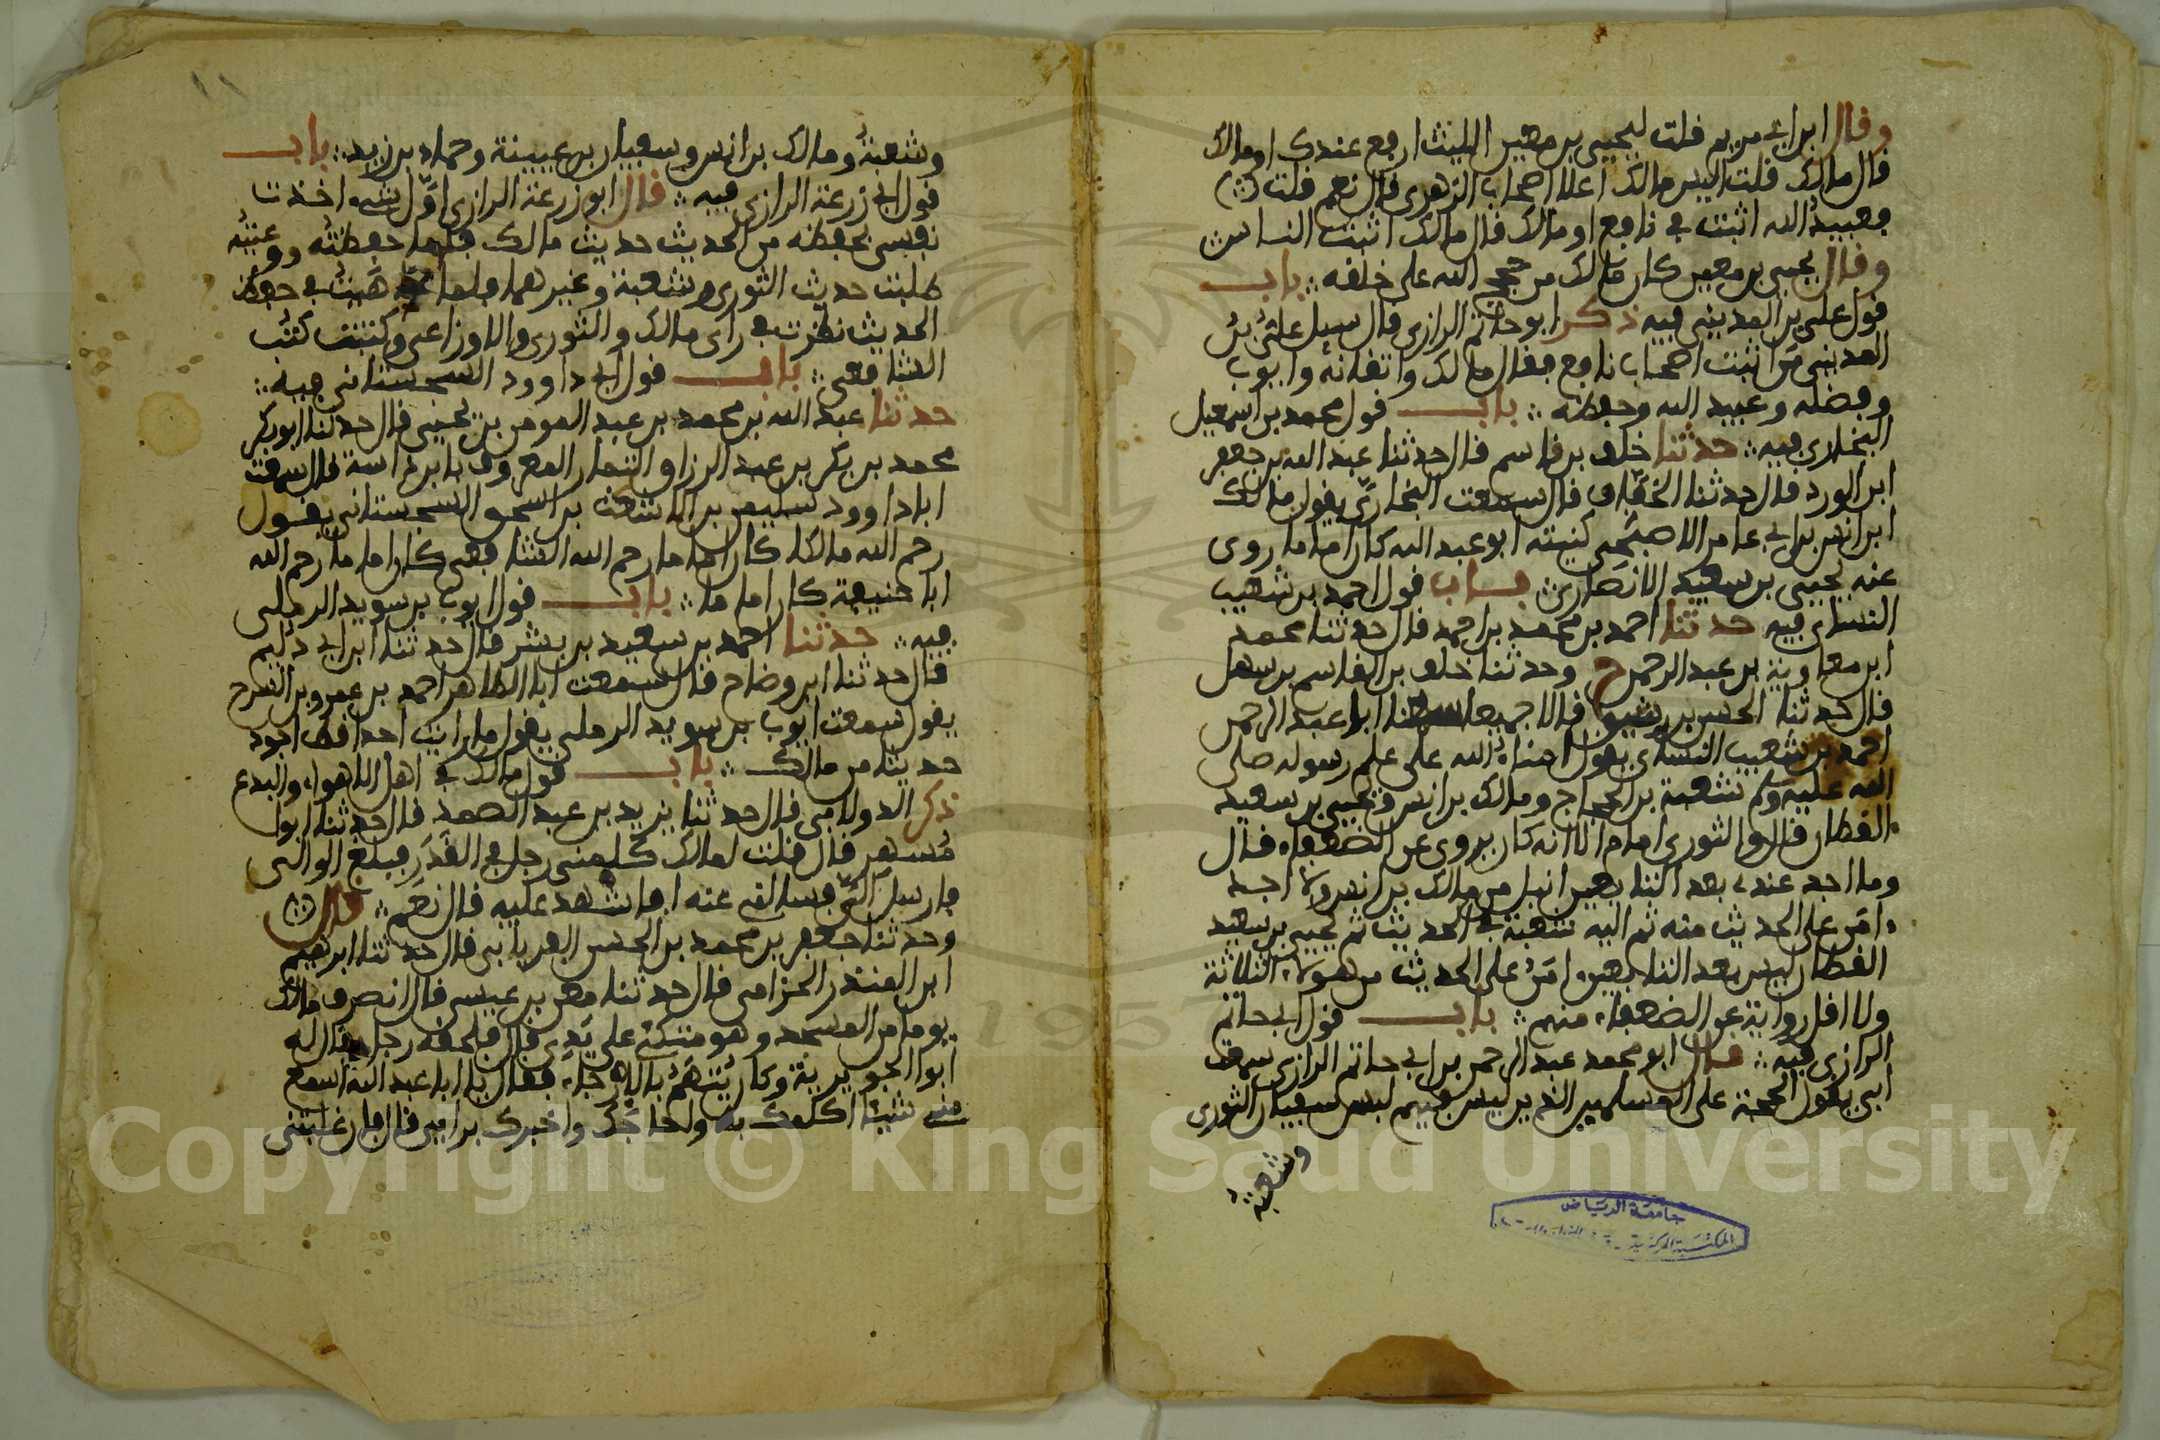 وقال ابن ابي مريم قلت ليحيى بن معين الليث ارفع عندك او مالك
قال مالك قلت اليس مالك اعلا اصحاب الزهري قال نعم قلت
فعبيد الله اثبت في نافع او مالك قال مالك اثبت الناس
وقال يحيى بن معين كان مالك من حجج الله على خلقه باب
قول علي بن المديني فيه ذكر ابو حاتم الرازي قال سيل علي بن
المديني من اثبت اصحاب نافع فقال مالك واتقانه وايوب
وفضله وعبيد الله وحفظه باب قول محمد بن اسمعيل
البخاري فيه حدثنا خلف بن قاسم قال حدثنا عبد الله بن جعفر
ابن الورد قال حدثنا الخفاف قال سمعت البخاري يقول مالك
ابن انس بن ابي عامر الاصبحي كنيته ابو عبد الله كان اماما روى
عنه يحيى بن سعيد الانصاري باب قول احمد بن شعيب
النساي فيه حدثنا احمد بن محمد بن احمد قال حدثنا محمد
ابن معاوية بن عبد الرحمن ح وحدثنا خلف بن القاسم بن سهل
قال حدثنا الحسن بن رشيق قالا جميعا سمعنا ابا عبد الرحمن
احمد بن شعيب النساي يقول امناء الله على علم رسوله صلى
الله عليه وسلم شعبة بن الحجاج ومالك بن انس ويحيى بن سعيد
القطان قال والثوري امام الا انه كان يروي عن الضعفاء قال
وما احد عندي بعد التابعين انبل من مالك بن انس ولا احد
امن على الحديث منه ثم اليه شعبة في الحديث ثم يحيى بن سعيد
القطان ليس بعد التابعين امن على الحديث من هولاء الثلاثة
ولا اقل رواية عن الضعفاء منهم باب قول ابي حاتم
الرازي فيه قال ابو محمد عبد الرحمن بن ابي حاتم الرازي سمعت
ابي يقول الحجة على المسلمين الذين ليس فيهم لبس سفيان الثوري
وشعبة
جامعة الرياض
وشعبة ومالك بن انس وسفيان بن عيينة وحماد بن زيد باب
قول ابي زرعة الرازي فيه قال ابو زرعة الرازي اول شيء اخذت
نفسي بحفظه من الحديث حديث مالك فلما حفظته ووعيته
طلبت حديث الثوري وشعبة وغيرهما فلما تهيت في حفظ
الحديث نظرت في راي مالك والثوري والاوزاعي وكتبت كتب
الشافعي باب قول ابي داوود السجستاني فيه
حدثنا عبد الله بن محمد بن عبد المومن بن يحيى قال حدثنا ابو بكر
محمد بن بكر بن عبد الرزاق التمار المعروف بابن داسة قال سمعت
ابا داوود سليمن بن الاشعث بن اسحق السجستاني يقول
رحم الله مالكا كان اماما رحم الله الشافعي كان اماما رحم الله
ابا حنيفة كان اماما باب قول ايوب بن سويد الرملي
فيه حدثنا احمد بن سعيد بن بشر قال حدثنا ابن ابي دليم
قال حدثنا ابن وضاح قال سمعت ابا الطاهر احمد بن عمرو بن السرح
يقول سمعت ايوب بن سويد الرملي يقول ما رايت احدا قط اجود
حديثا من مالك باب قول مالك في اهل الاهواء والبدع
ذكر الدولابي قال حدثنا يزيد بن عبد الصمد قال حدثنا ابوا
مسهر قال قلت لمالك كلمني رجل في القدر فبلغ الوالي
فارسل الي فسالني عنه افاشهد عليه قال نعم قال
وحدثنا جعفر بن محمد بن الحسن الفريابي قال حدثنا ابرهيم
ابن المنذر الحزامي قال حدثنا معن بن عيسى قال انصرف مالك
يوما من المسجد وهو متكئ على يدي قال فلحقه رجل يقال له
ابوا الجويرية وكان يتهم بالارجاء فقال يا ابا عبد الله اسمع
مني شيئا اكلمك به واحاجك واخبرك برايي قال فان غلبتني
Copyright © King Saud University
1957